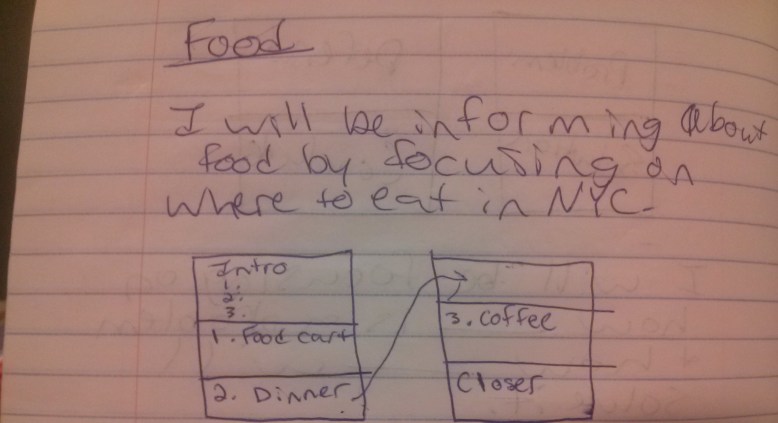 Food
I will be informing about
food by focusing on
where to eat in NYC.
Intro
1.
2.
3.
1. Food cart
2. Dinner
3. Coffee
Closer